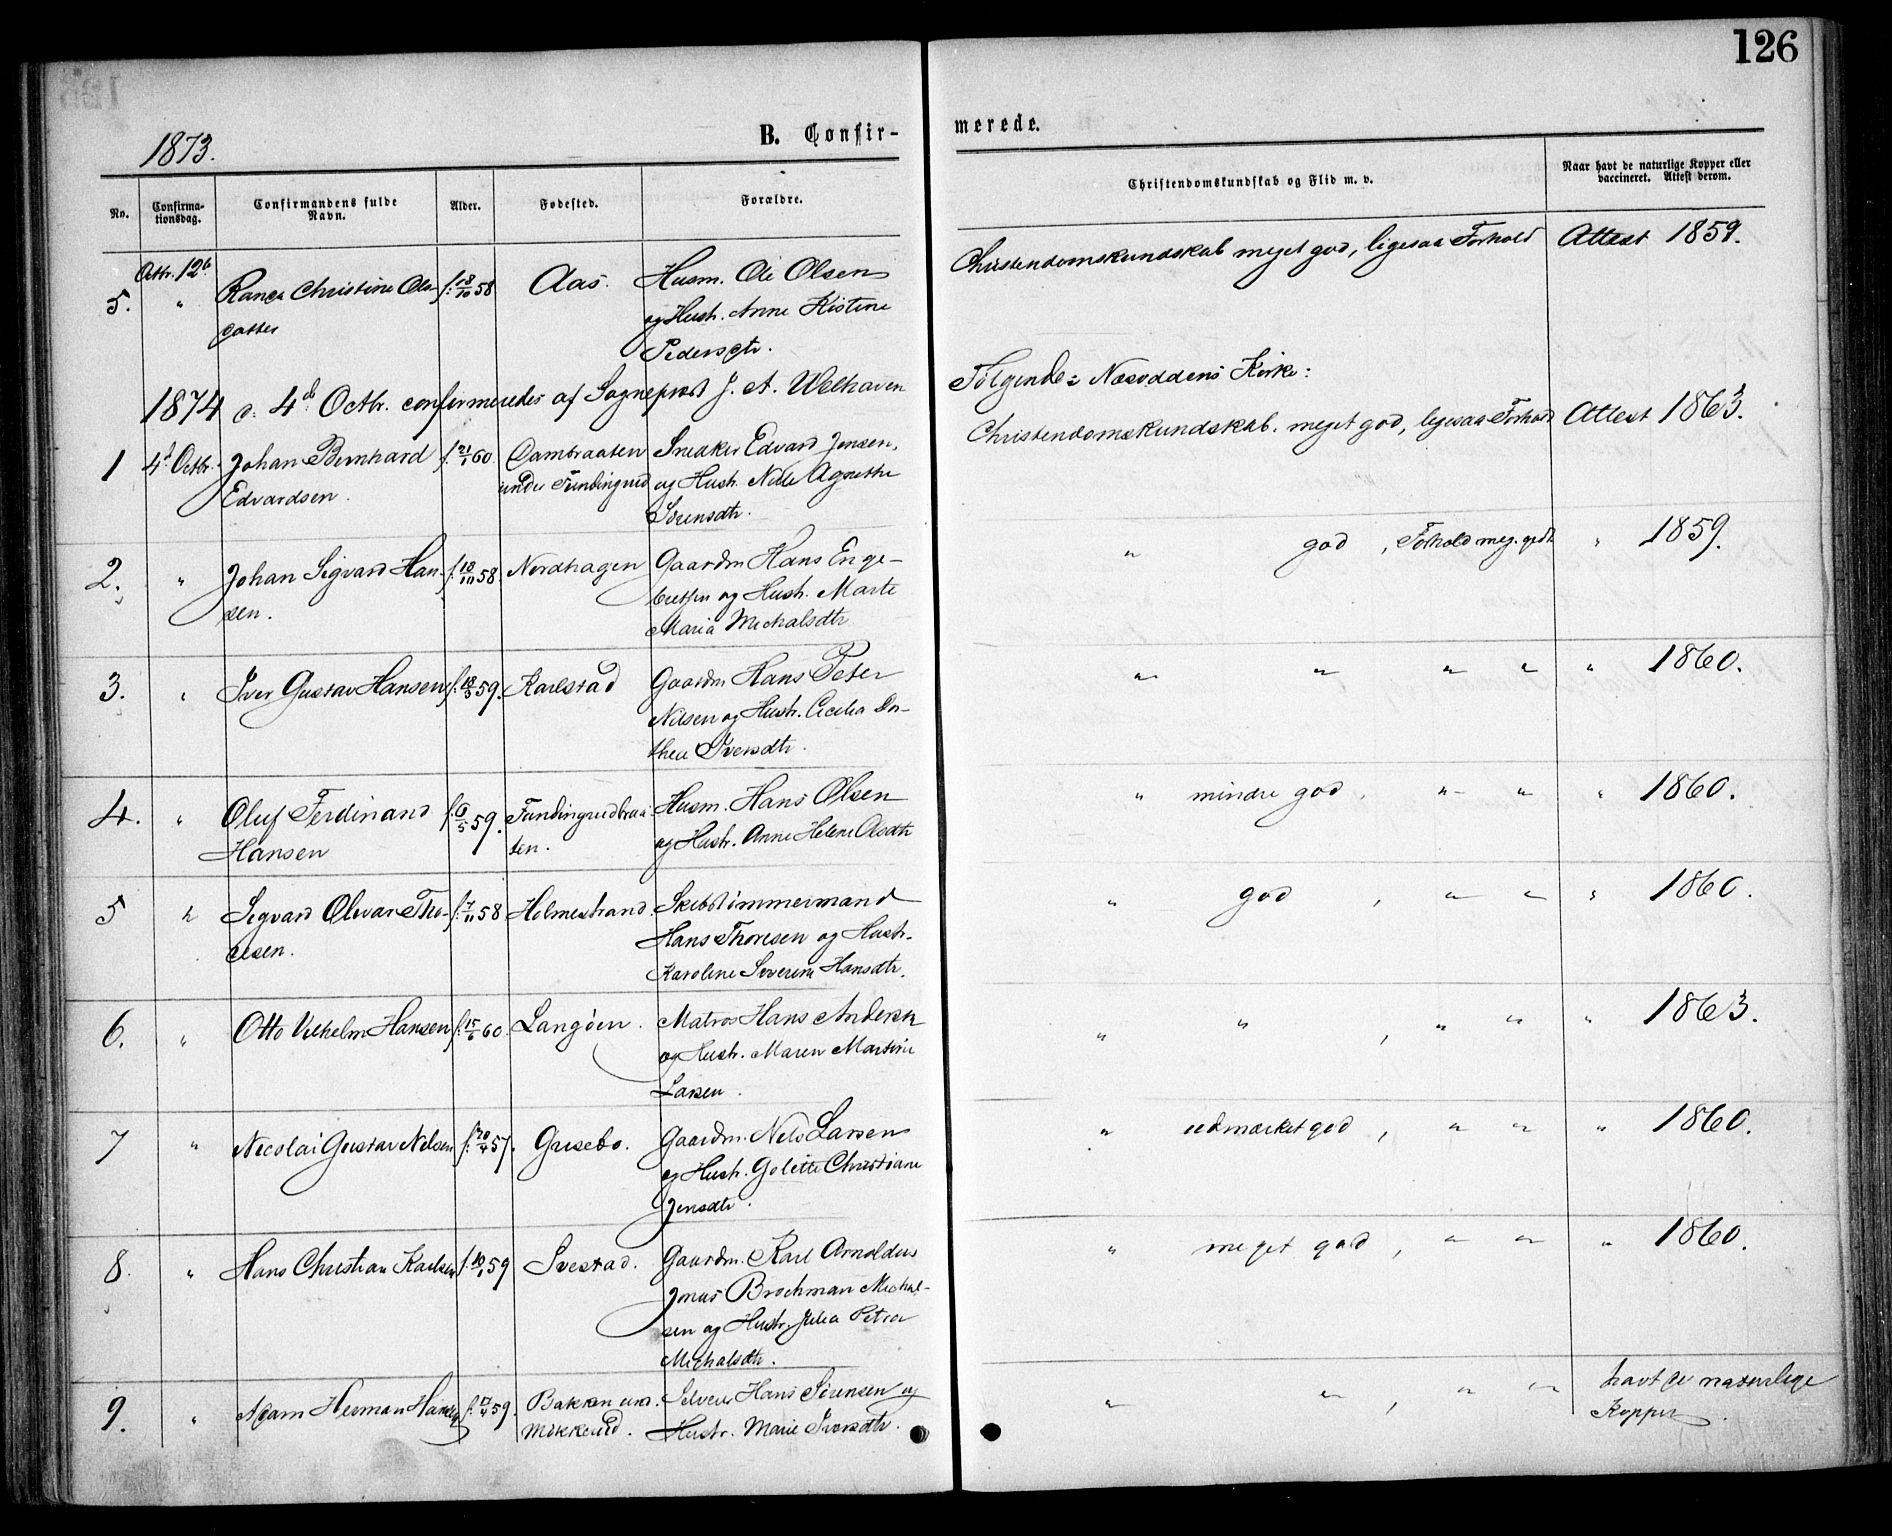 126
1873.
B. Confir-
merede.
No.
Confirma-
tionsdag.
Confirmandens fulde
Navn.
Alder.
Fødested.
Forældre.
Christendomskundskab og Flid m. v.
Naar havt de naturlige Kopper eller
vaccineret. Attest derom.
5. Octbr. 12te " Christine Ols- f. 18/10 58 Aas. Husm. Ole Olsen Christendomskundskab meget god, ligesaa Forhold Attest 1859.
datter og Hustr. Anne Kistine
Pedersdtr.
1874 d. 4de Octbr. confirmeredes af Sognepræst J. A. Welhaven Følgende i Næsoddens Kirke:
1 4de Octbr. Johan Bernhard f. 21/1 60. Dambraaten Snedker Edvard Jensen, Christendomskundskab. meget god, ligesaa Forhold Attest 1863.
Edvardsen. under Fundingrud og Hustr. Nille Agnethe
Sørensdtr.
2. " Johan Sigvard Han- f. 18/10 58. Nordhagen Gaardm Hans Enge- " god, Forhold meg. godt " 1859.
sen. bretsen og Hustr. Marte
Maria Michalsdtr
3. " Iver Gustav Hansen f. 18/3 59. Karlstad Gaardm Hans Peter " " " " " 1860.
Nilsen og Hustr. Cecilia Dor-
thea Iversdtr.
4. " Oluf Ferdinand f. 6/5 59. Fundingrudbraa- Husm. Hans Olsen " mindre god, " " " 1860.
Hansen ten. og Hustr. Anne Helene Olsdtr
5 " Sigvard Olivar Tho- f. 7/11 58 Holmestrand. Skibstimmermand " god, " " " 1860.
resen. Hans Thoresen og Hustr.
Karoline Severine Hansdtr.
6. " Otto Vilhelm Hansen f. 15/6 60. Langøen. Matros Hans Andersen " ", " " " 1863.
og Hustr. Maren Martine
Larsen.
7 " Nicolai Gustav Nilsen f. 20/4 57. Grisebo. Gaardm. Nils Larsen " udmærket god, " " " 1860.
og Hustr. Golette Christiane
Jensdtr.
8. " Hans Christian Karlsen f. 10/1 59 Svestad. Gaardm. Karl Arnoldus " meget god, " " " 1860.
Jonas Brochman Michal-
sen og Hustr. Julia Petra
Michalsdtr.
9. " Adam Herman Hansen f. 17/4 59. Bakken und. Hans Sørensen og " ", " " havt de naturlige
Mikkerud. Hustr. Marie Iversdtr. Kopper.